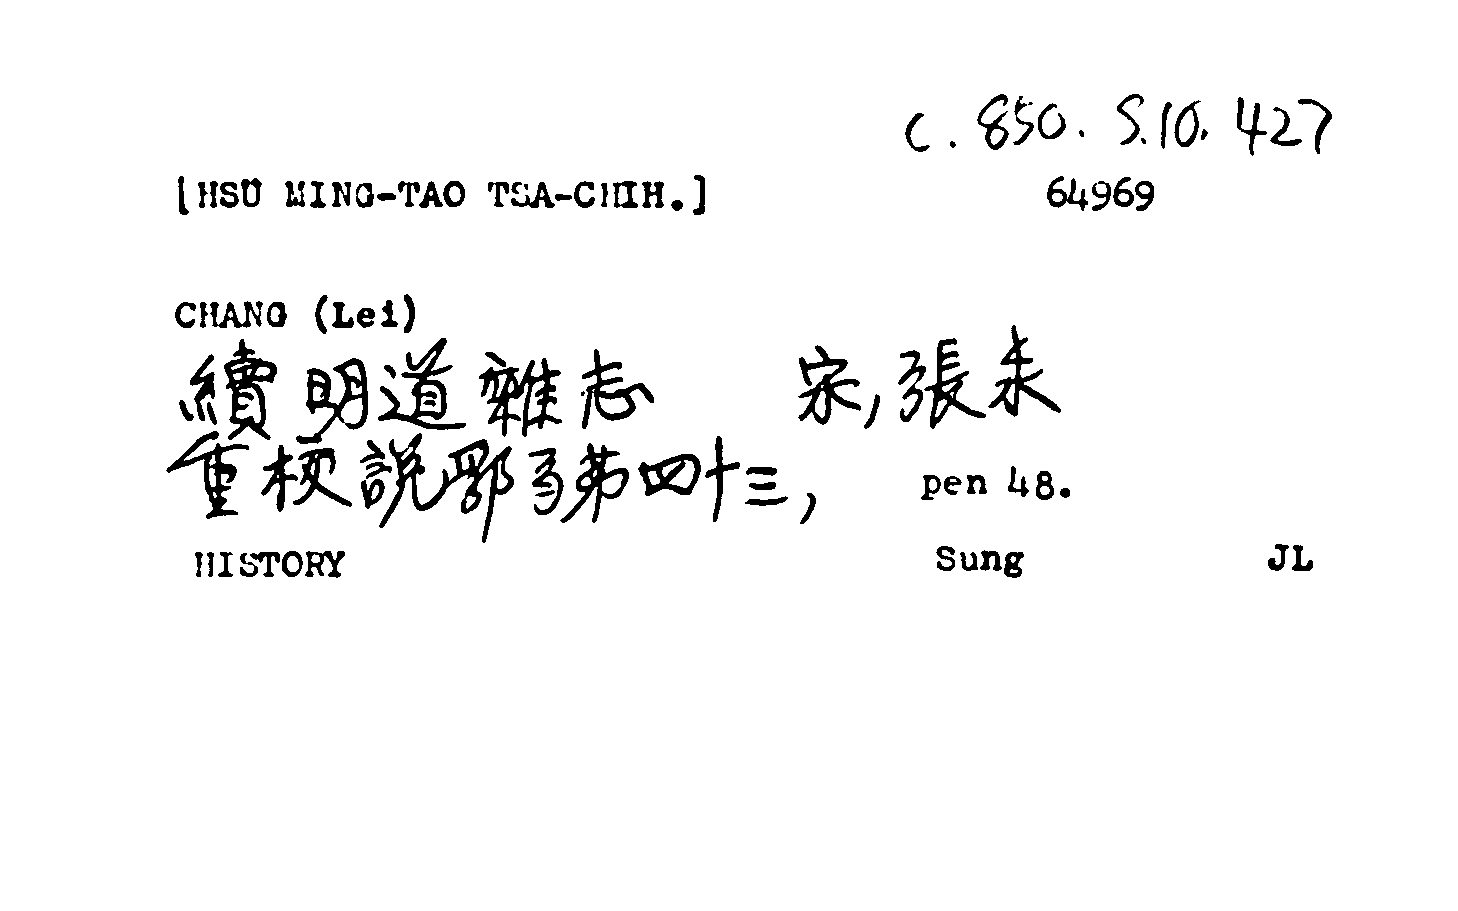 C. 850. S.10. 427
[HSÜ MING-TAO TSA-CHIH.] 64969
CHANG (Lei)
續明道雜志 宋,張耒
重校說郛弓第四十三, pen 48.
HISTORY Sung JL